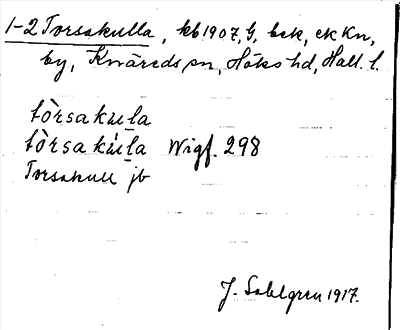 1-2 Torsakulla, kb 1907, G, bsk, ek Kn,
by, Knäreds sn, Höks hd, Hall. l.
tòrsakula
tòrsakula Wigf. 298
Torsakull jb
J. Sahlgren 1917.